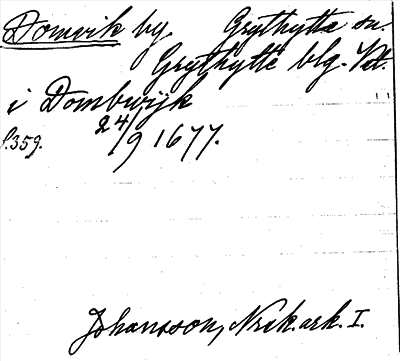 Domvik by. Grythytte sn.
Grythytte blg. Vst.
i Dombwijk
S. 359. 24/9 1677.
Johansson, Nrik. ark. I.